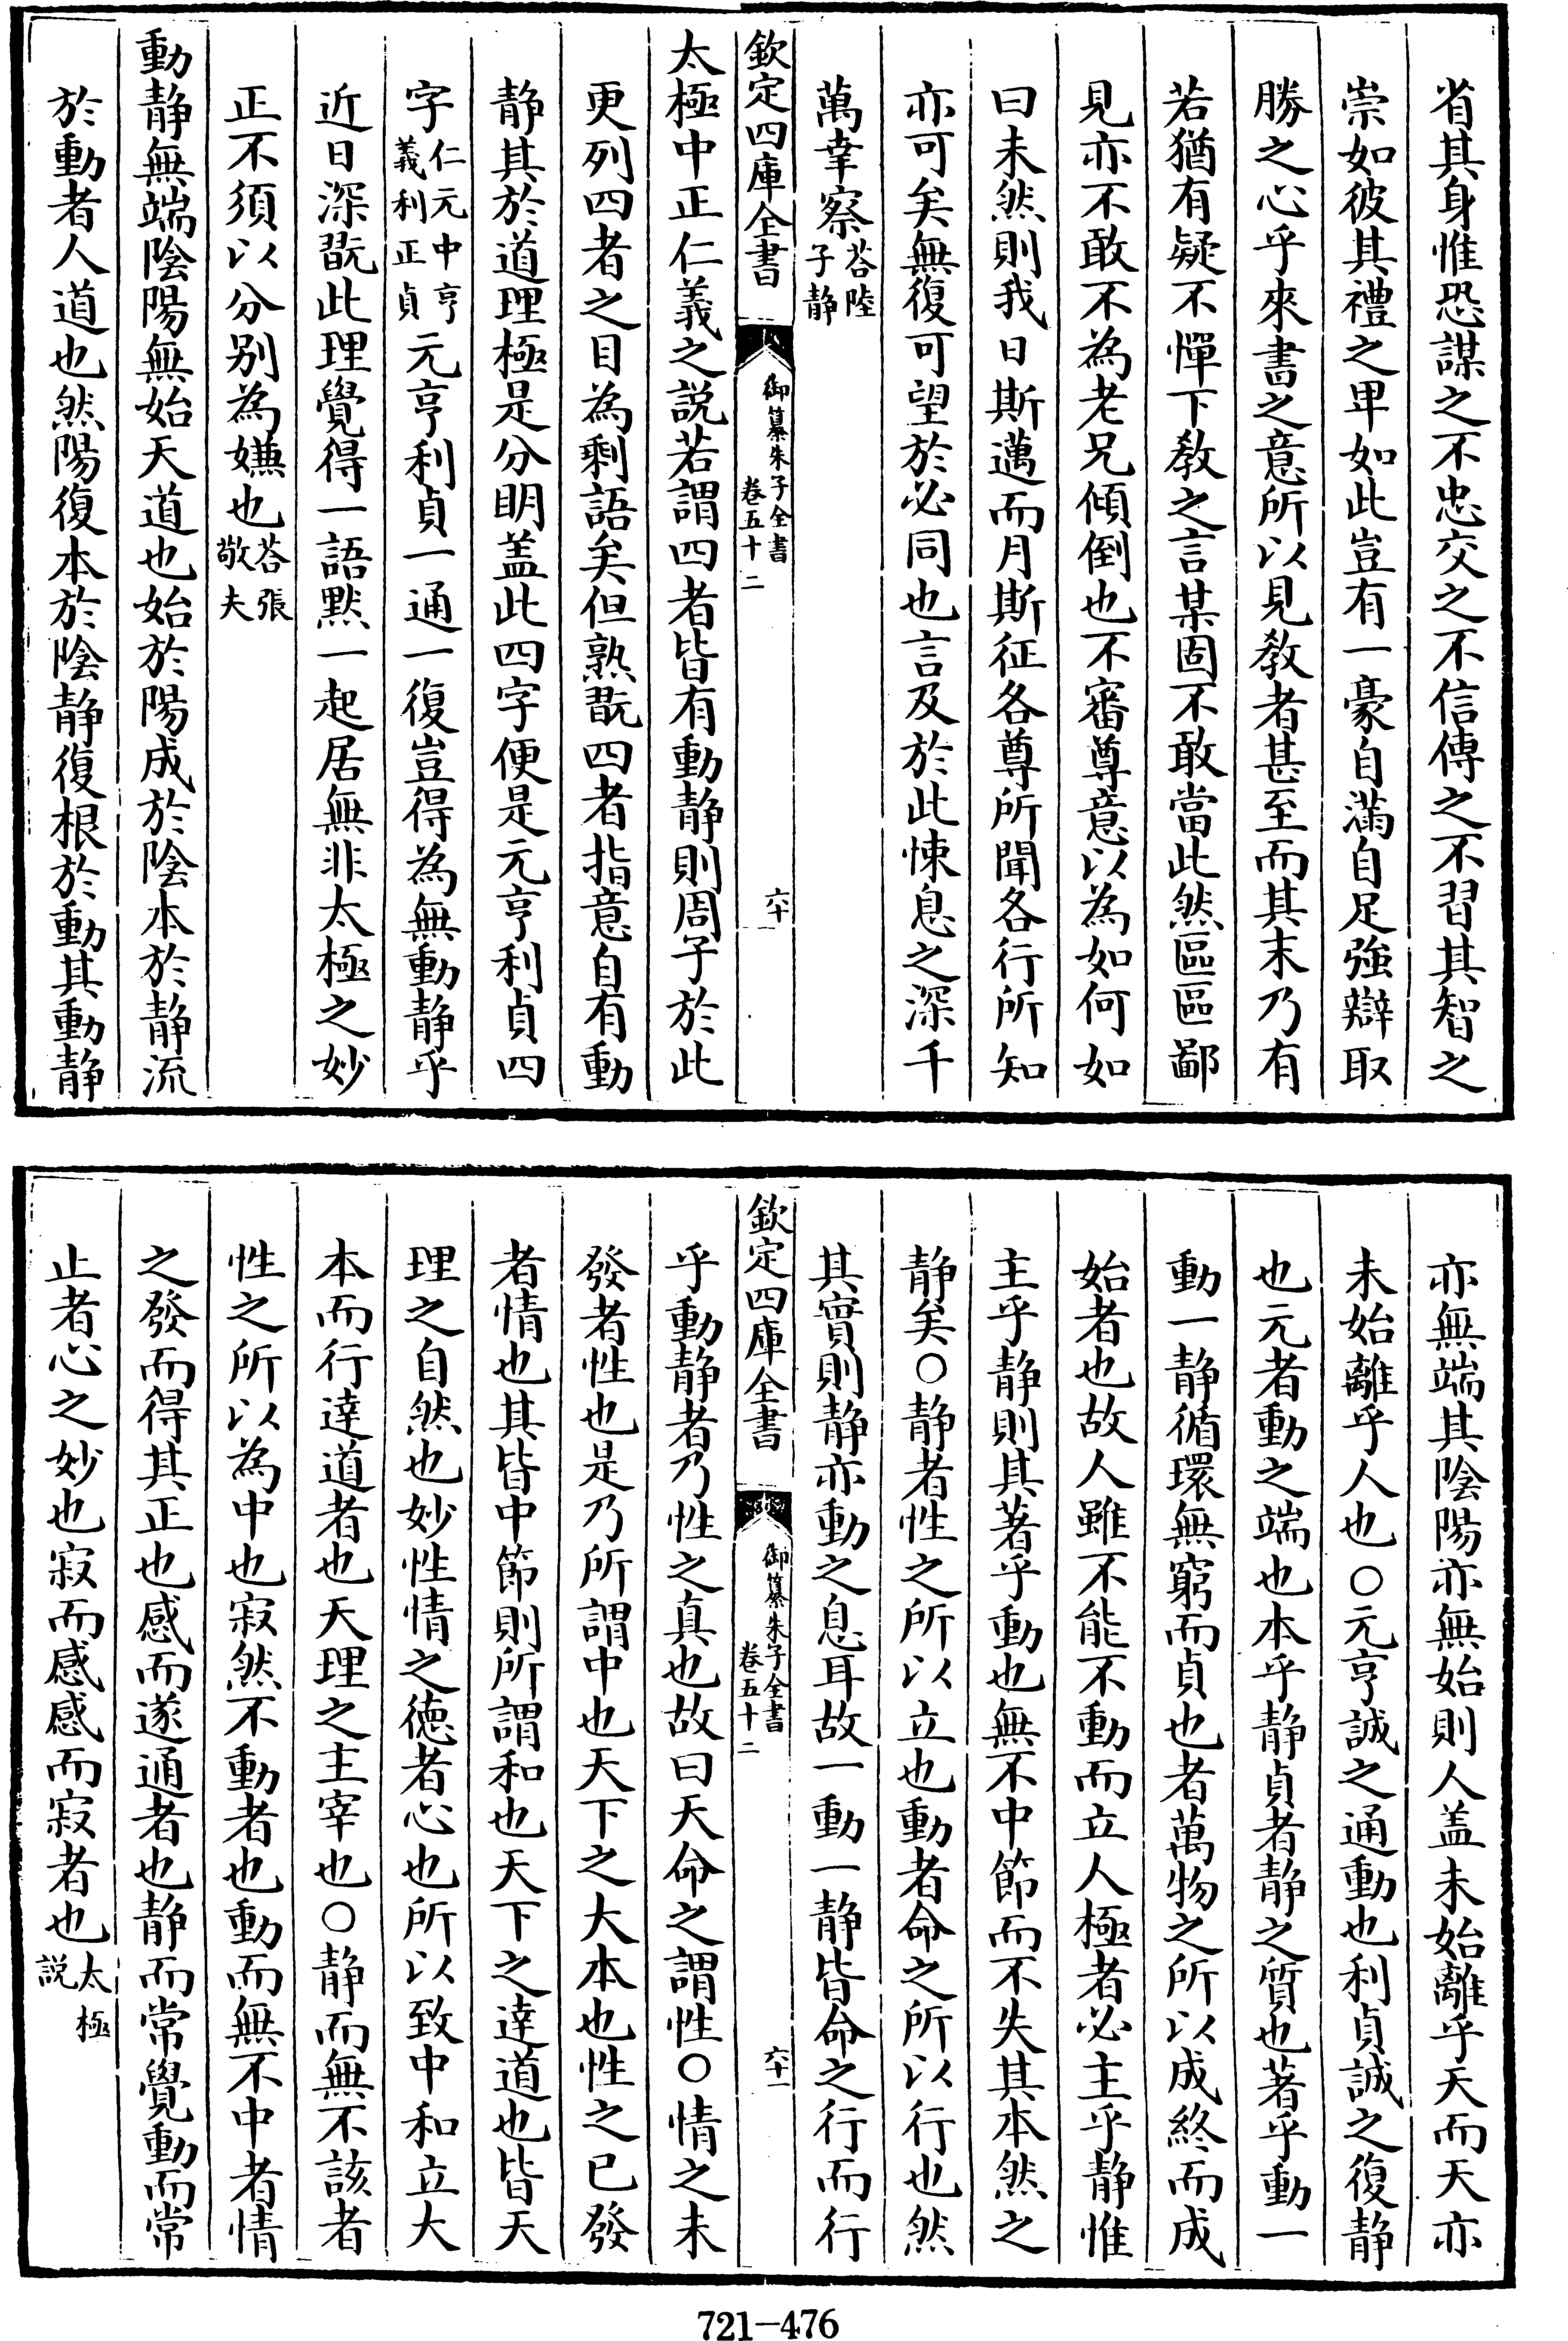 省其身惟恐謀之不忠交之不信傳之不習其智之
崇如彼其禮之卑如此豈有一豪自滿自足強辯取
勝之心乎來書之意所以見教者甚至而其末乃有
若猶有疑不憚下教之言某固不敢當此然區區鄙
見亦不敢不為老兄傾倒也不審尊意以為如何如
曰未然則我日斯邁而月斯征各尊所聞各行所知
亦可矣無復可望於必同也言及於此悚息之深千
萬幸察荅陸子静
欽定四庫全書 御纂朱子全書 卷五十二 六十
太極中正仁義之説若謂四者皆有動静則周子於此
更列四者之目為剩語矣但熟翫四者指意自有動
静其於道理極是分明盖此四字便是元亨利貞四
字仁元中亨義利正貞元亨利貞一通一復豈得為無動静乎
近日深翫此理覺得一語默一起居無非太極之妙
正不須以分别為嫌也荅張敬夫
動静無端陰陽無始天道也始於陽成於陰本於静流
於動者人道也然陽復本於陰静復根於動其動静
亦無端其陰陽亦無始則人盖未始離乎天而天亦
未始離乎人也○元亨誠之通動也利貞誠之復静
也元者動之端也本乎静貞者静之質也著乎動一
動一静循環無窮而貞也者萬物之所以成終而成
始者也故人雖不能不動而立人極者必主乎静惟
主乎静則其著乎動也無不中節而不失其本然之
静矣○静者性之所以立也動者命之所以行也然
其實則静亦動之息耳故一動一静皆命之行而行
欽定四庫全書 御纂朱子全書 卷五十二 六十一
乎動静者乃性之真也故曰天命之謂性○情之未
發者性也是乃所謂中也天下之大本也性之已發
者情也其皆中節則所謂和也天下之達道也皆天
理之自然也妙性情之德者心也所以致中和立大
本而行達道者也天理之主宰也○静而無不該者
性之所以為中也寂然不動者也動而無不中者情
之發而得其正也感而遂通者也静而常覺動而常
止者心之妙也寂而感感而寂者也太極説
721-476